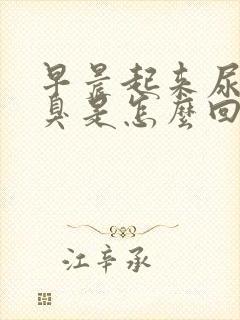 早晨起来尿
臭是怎麼回
江辛承